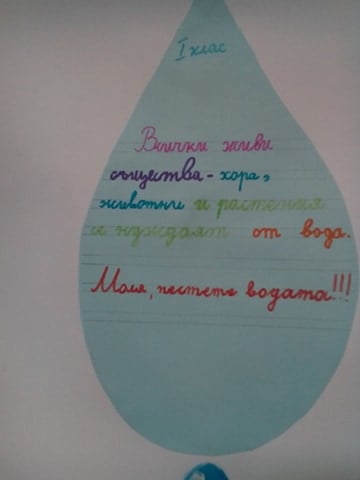 I клас
Всички живи
същества - хора,
животни и растения
се нуждаят от вода.
Моля, пестете водата!!!